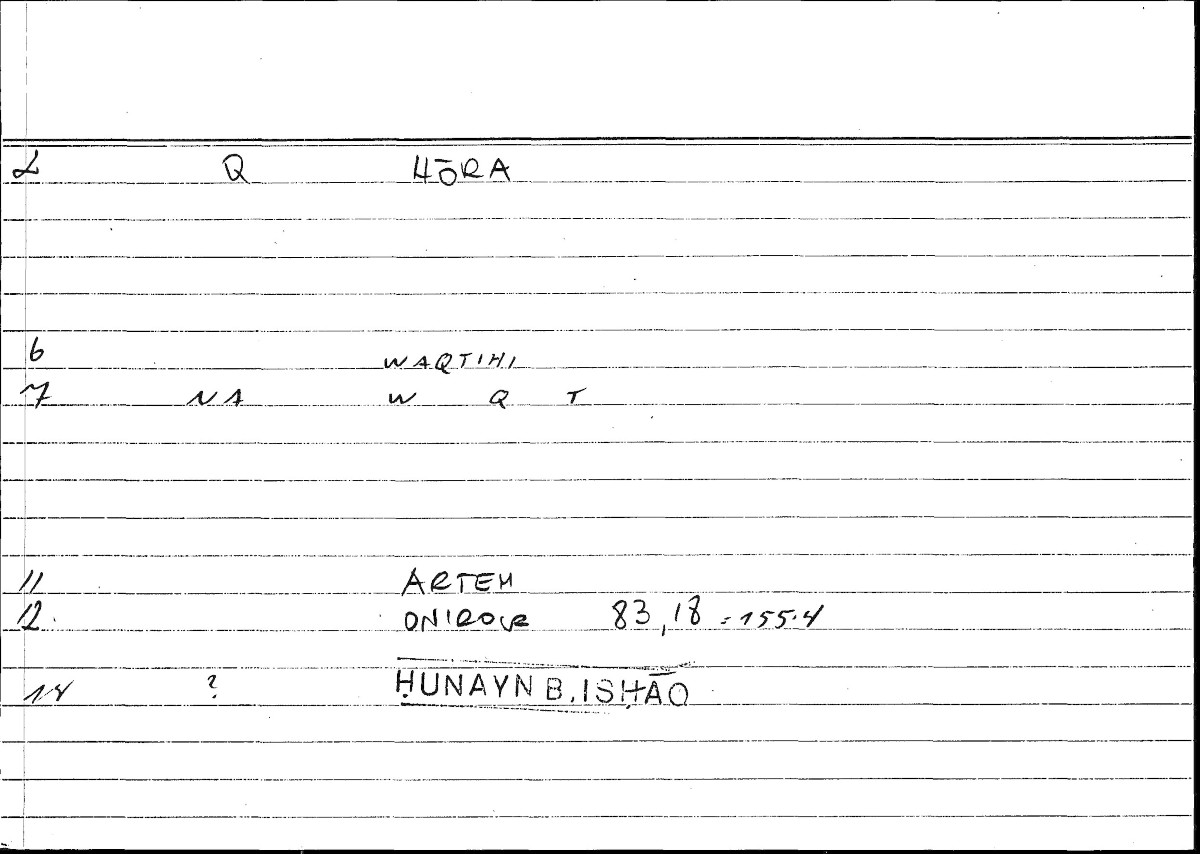 2 Q HŌRA
6 WAQTIHI
7 NA W Q T
11 ARTEM
12. ONIROCR 83,18 = 155.4
14 ? ḤUNAYN B. ISḤĀQ